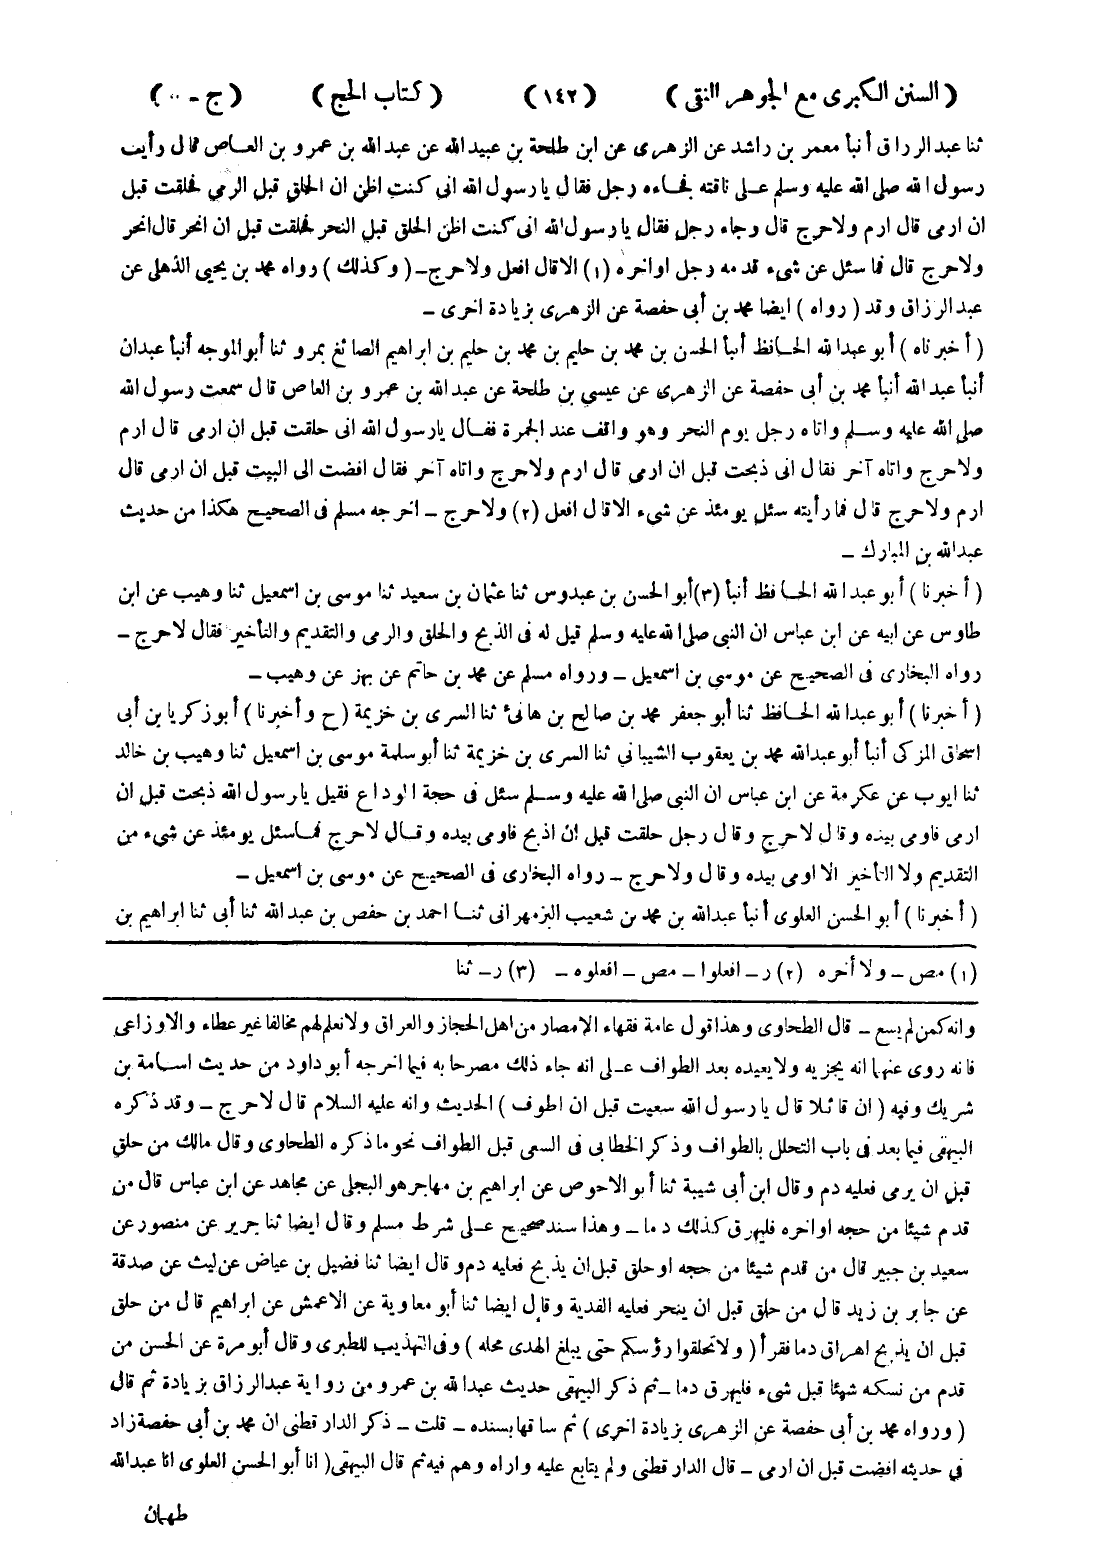 ( السنن الكبرى مع الجوهر النقى ) ( ١٤٢ ) ( كتاب الحج ) ( ج ـ ٠٠ )
ثنا عبد الرزاق أنبأ معمر بن راشد عن الزهرى عن ابن طلحة بن عبيد الله عن عبد الله بن عمرو بن العاص قال رأيت
رسول الله صلى الله عليه وسلم على ناقته بجاءه رجل فقال يا رسول الله انى كنت اظن ان الحلق قبل الرمي فحلقت قبل
ان ارمى قال ارم ولا حرج قال وجاء رجل فقال يا رسول الله انى كنت اظن الحلق قبل النحر فحلقت قبل ان انحر قال انحر
ولا حرج قال فما سئل عن شيء قدمه رجل او اخره (١) الا قال افعل ولا حرج ـ ( وكذلك ) رواه محمد بن يحيى الذهلى عن
عبد الرزاق وقد ( رواه ) ايضا محمد بن أبى حفصة عن الزهرى بزيادة اخرى ـ
( أخبرناه ) أبو عبد الله الحافظ أنبأ الحسن بن محمد بن حليم بن محمد بن حليم بن ابراهيم الصائغ بمرو ثنا أبو الموجه أنبأ عبدان
أنبأ عبد الله أنبأ محمد بن أبى حفصة عن الزهرى عن عيسي بن طلحة عن عبد الله بن عمرو بن العاص قال سمعت رسول الله
صلى الله عليه وسلم واتاه رجل يوم النحر وهو واقف عند الجمرة فقال يا رسول الله انى حلقت قبل ان ارمى قال ارم
ولا حرج واتاه آخر فقال انى ذبحت قبل ان ارمى قال ارم ولا حرج واتاه آخر فقال افضت الى البيت قبل ان ارمى قال
ارم ولا حرج قال فما رأيته سئل يومئذ عن شيء الا قال افعل (٢) ولا حرج ـ اخرجه مسلم فى الصحيح هكذا من حديث
عبد الله بن المبارك ـ
( أخبرنا ) أبو عبد الله الحافظ أنبأ (٣) أبو الحسن بن عبدوس ثنا عثمان بن سعيد ثنا موسى بن اسمعيل ثنا وهيب عن ابن
طاوس عن ابيه عن ابن عباس ان النبي صلى الله عليه وسلم قيل له فى الذبح والحلق والرمى والتقديم والتأخير فقال لا حرج ـ
رواه البخارى فى الصحيح عن موسى بن اسمعيل ـ ورواه مسلم عن محمد بن حاتم عن بهز عن وهيب ـ
( أخبرنا ) أبو عبد الله الحافظ ثنا أبو جعفر محمد بن صالح بن هانئ ثنا السرى بن خزيمة ( ح وأخبرنا ) أبو زكريا بن أبى
اسحاق المزكى أنبأ أبو عبد الله محمد بن يعقوب الشيبانى ثنا السرى بن خزيمة ثنا أبو سلمة موسى بن اسمعيل ثنا وهيب بن خالد
ثنا ايوب عن عكرمة عن ابن عباس ان النبي صلى الله عليه وسلم سئل فى حجة الوداع فقيل يا رسول الله ذبحت قبل ان
ارمى فاومى بيده وقال لا حرج وقال رجل حلقت قبل ان اذبح فاومى بيده وقال لا حرج فما سئل يومئذ عن شيء من
التقديم ولا التأخير الا اومى بيده وقال ولا حرج ـ رواه البخارى فى الصحيح عن موسى بن اسمعيل ـ
( أخبرنا ) أبو الحسن العلوى أنبأ عبد الله بن محمد بن شعيب البزمهرانى ثنا احمد بن حفص بن عبد الله ثنا أبى ثنا ابراهيم بن
(١) مص ـ ولا أخره (٢) ر ـ افعلوا ـ مص ـ افعلوه ـ (٣) ر ـ ثنا
وانه كمن لم يسع ـ قال الطحاوى وهذا قول عامة فقهاء الامصار من اهل الحجاز والعراق ولا نعلم لهم مخالفا غير عطاء والاوزاعى
فانه روى عنهما انه يجزيه ولا يعيده بعد الطواف على انه جاء ذلك مصرحا به فيما اخرجه أبو داود من حديث اسامة بن
شريك وفيه ( ان قائلا قال يا رسول الله سعيت قبل ان اطوف ) الحديث وانه عليه السلام قال لا حرج ـ وقد ذكره
البيهقى فيما بعد فى باب التحلل بالطواف وذكر الخطابى فى السعى قبل الطواف نحو ما ذكره الطحاوى وقال مالك من حلق
قبل ان يرمى فعليه دم وقال ابن أبى شيبة ثنا أبو الاحوص عن ابراهيم بن مهاجر هو البجلى عن مجاهد عن ابن عباس قال من
قدم شيئا من حجه او اخره فليهرق كذلك دما ـ وهذا سند صحيح على شرط مسلم وقال ايضا ثنا جرير عن منصور عن
سعيد بن جبير قال من قدم شيئا من حجه او حلق قبل ان يذبح فعليه دم وقال ايضا ثنا فضيل بن عياض عن ليث عن صدقة
عن جابر بن زيد قال من حلق قبل ان ينحر فعليه الفدية وقال ايضا ثنا أبو معاوية عن الاعمش عن ابراهيم قال من حلق
قبل ان يذبح اهراق دما فقرأ ( ولا تحلقوا رؤسكم حتى يبلغ الهدى محله ) وفى التهذيب للطبرى وقال أبو مرة عن الحسن من
قدم من نسكه شيئا قبل شيء فليهرق دما ـ ثم ذكر البيهقى حديث عبد الله بن عمرو من رواية عبد الرزاق بزيادة ثم قال
( ورواه محمد بن أبى حفصة عن الزهرى بزيادة اخرى ) ثم ساقها بسنده ـ قلت ـ ذكر الدار قطنى ان محمد بن أبى حفصة زاد
فى حديثه افضت قبل ان ارمى ـ قال الدار قطنى ولم يتابع عليه واراه وهم فيه ثم قال البيهقى ( انا أبو الحسن العلوى انا عبد الله
طهمان